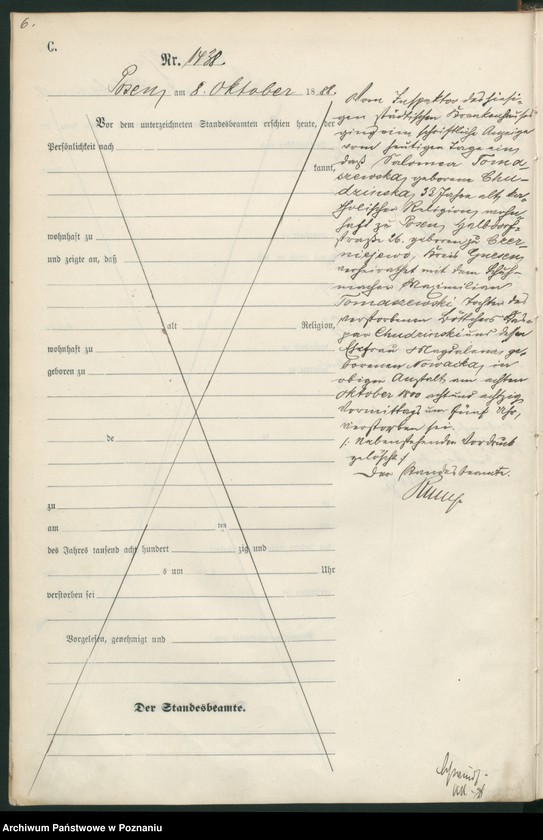 6.
C.
Nr. 1438.
Posen, am 8. Oktober 1888.
Vor dem unterzeichneten Standesbeamten erschien heute, der
Persönlichkeit nach
kannt,
wohnhaft zu
und zeigte an, daß
alt Religion,
wohnhaft zu
geboren zu
de
zu
am ten
des Jahres tausend acht hundert zig und
s um Uhr
verstorben sei
Vorgelesen, genehmigt und
Der Standesbeamte.
Vom Inspektor des hiesi-
gen städtischen Krankenhauses
ging eine schriftliche Anzeige
vom heutigen Tage ein,
daß Salomea Toma-
szewska, geborene Chu-
dzinska, 33 Jahre alt, ka-
tholischer Religion, wohn-
haft zu Posen, Halbdorf-
straße 26. geboren zu Czer-
niejewo, Kreis Gnesen,
verheirathet mit dem Schuh-
macher Maximilian
Tomaszewski, Tochter des
verstorbenen Böttchers
Chudzinski und dessen
Ehefrau Magdalena, ge-
borenen Nowacka, in
obiger Anstalt am achten
Oktober 1800 acht und achtzig
Vormittags um fünf Uhr,
verstorben sei.
/: Nebenstehender Vordruck
gelöscht :/
Der Standesbeamte.
Archiwum Państwowe w Poznaniu